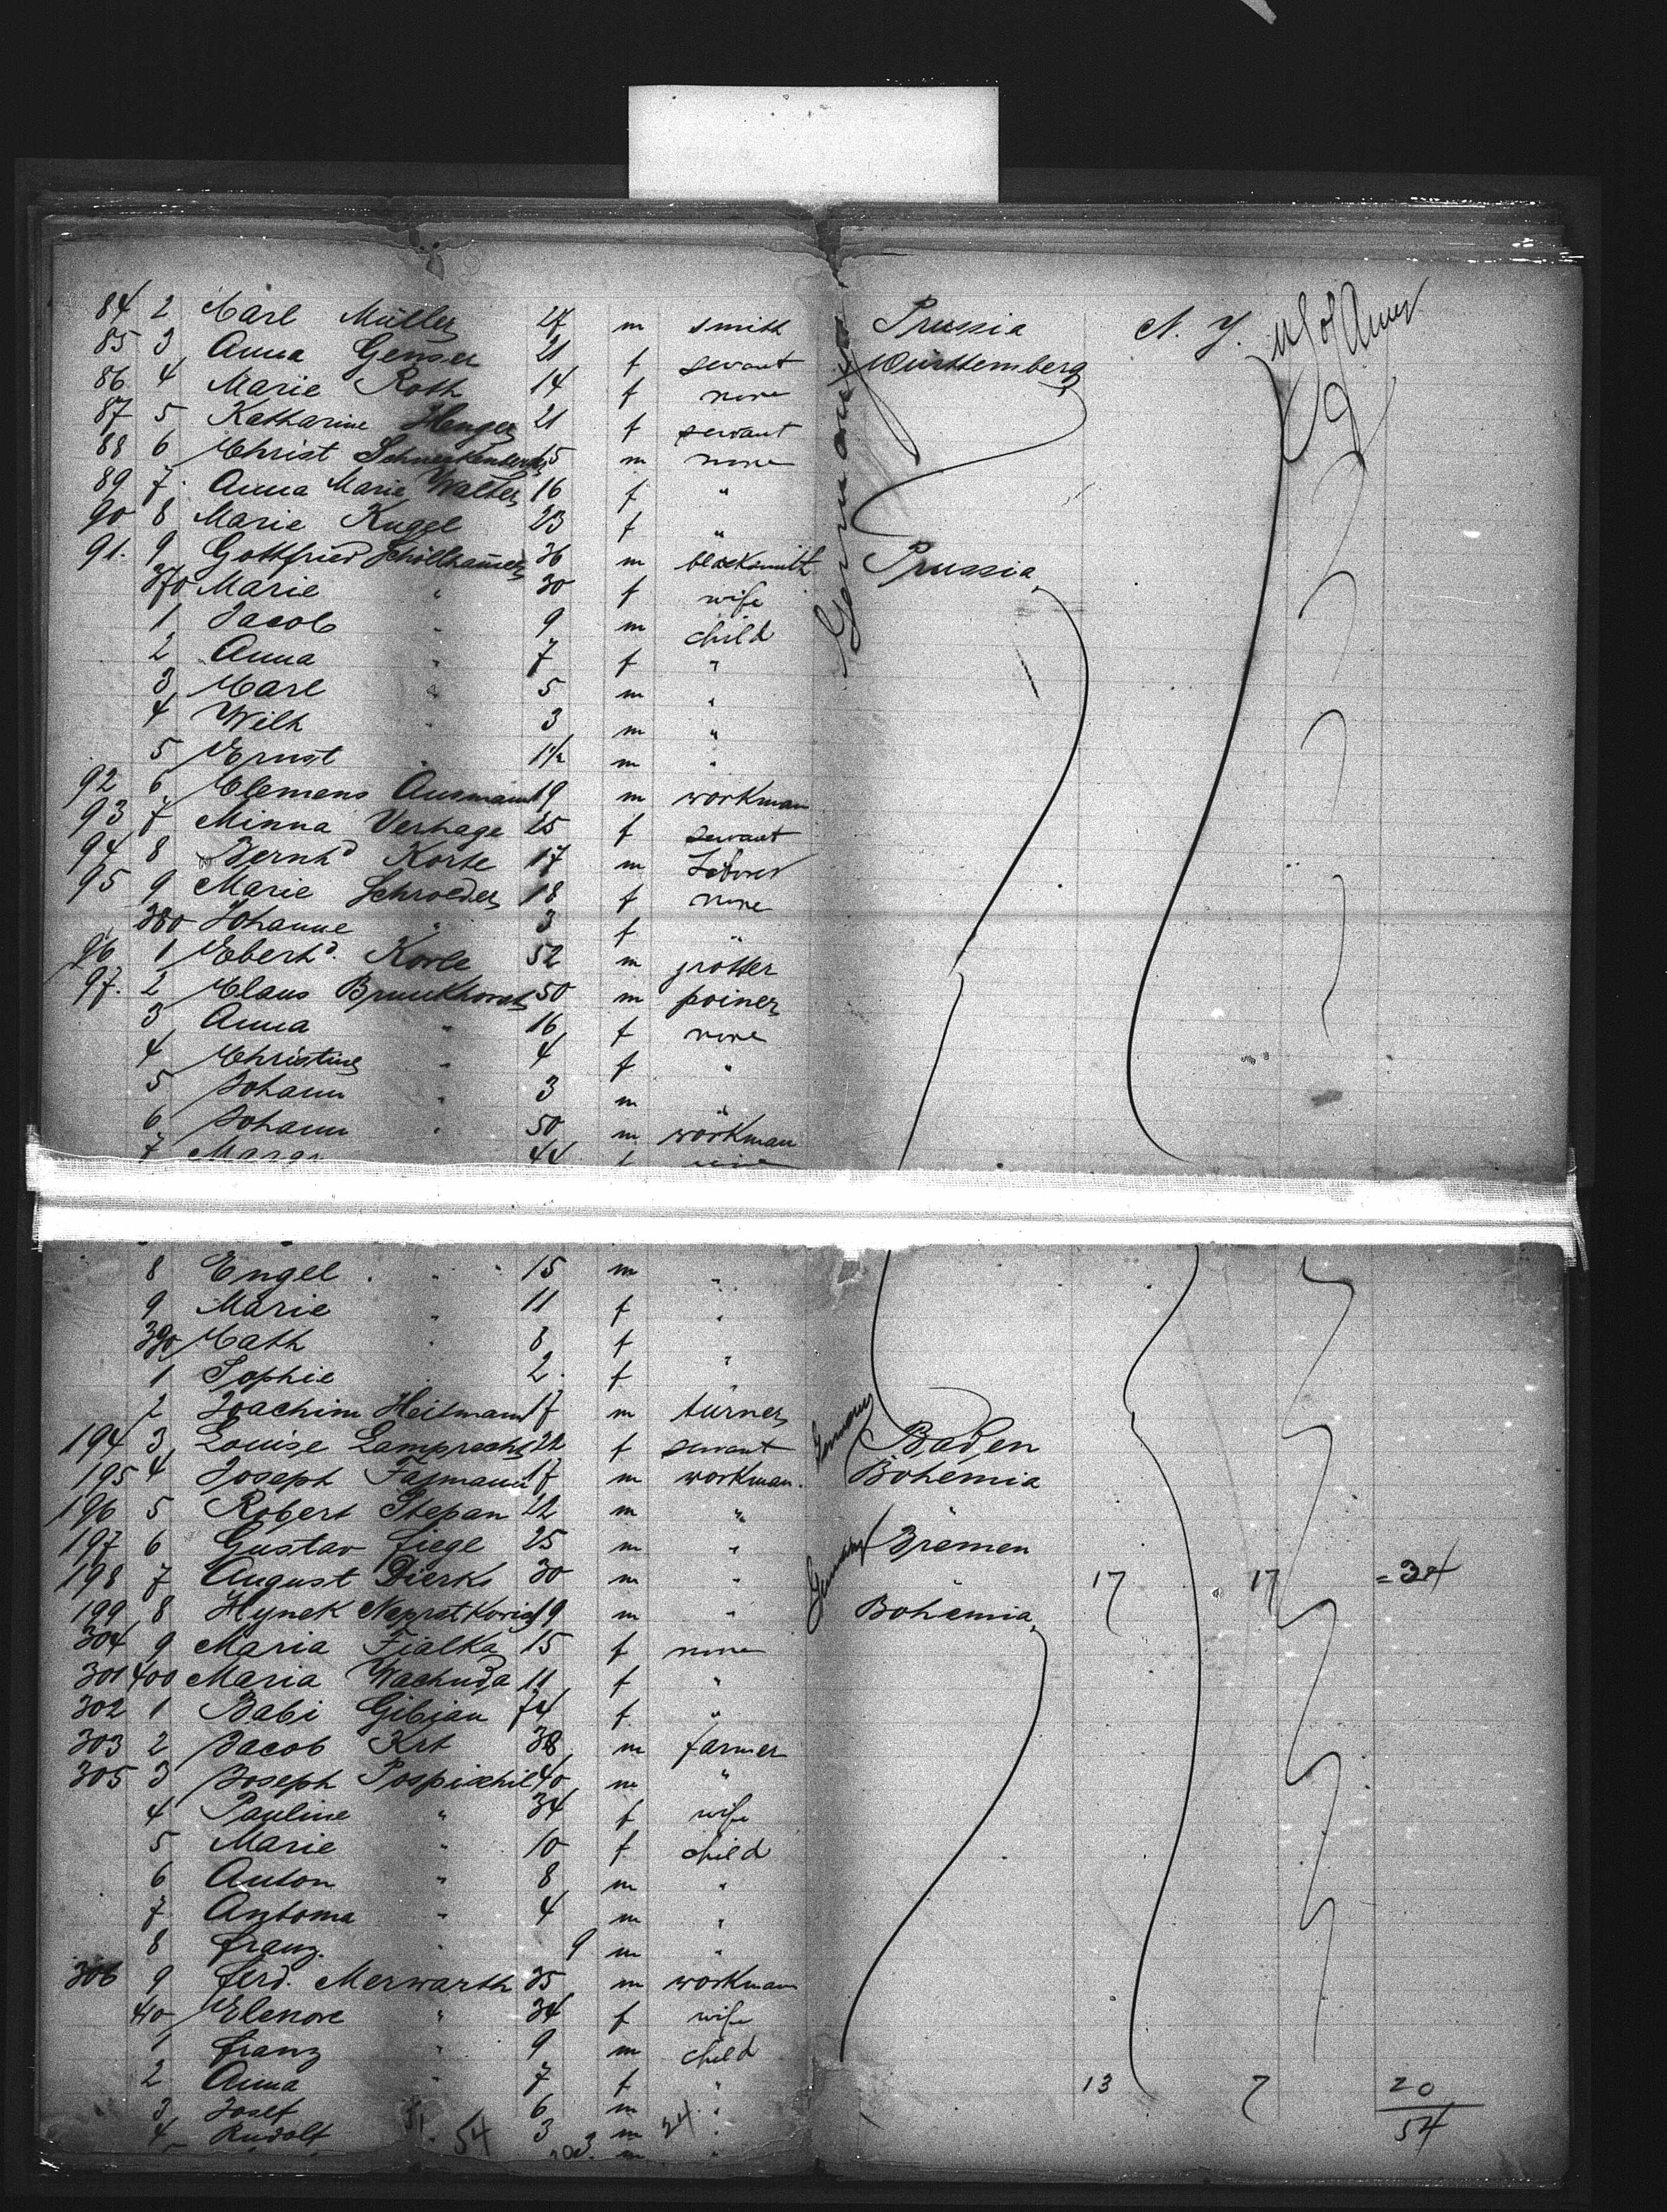 84 2 Carl Müller 27 m smith Prussia N. Y. U S of Amer
85 3 Anna Genser 21 f servant Württemberg
86 4 Marie Roth 14 f none
87 5 Katharine Henger 21 f servant
88 6 Christ Schneckenberger 15 m none
89 7 Anna Marie Walter 16 f "
90 8 Marie Kugel 23 f "
91. 9 Gottfried Schöllhammer 36 m blacksmith Prussia
370 Marie " 30 f wife
1 Jacob " 9 m child
2 Anna " 7 f "
3 Carl " 5 m "
4 Wilh " 3 m "
5 Ernst " 1½ m "
92 6 Clemens Ausmann 19 m workman
93 7 Minna Verhage 25 f servant
94 8 Bernhd Korte 17 m
95 9 Marie Schroeder 18 f none
380 Johanne " 3 f "
96 1 Eberhd. Korte 52 m
97. 2 Claus Brunkhorst 50 m poiner
3 Anna " 16 f none
4 Christine " 4 f "
5 Johann " 3 m "
6 Johann " 50 m workman
7 44 f
8 Engel " 15 m "
9 Marie " 11 f "
390 Cath " 8 f "
1 Sophie 2 f "
2 Joachim Heitmann 17 m turner
194 3 Louise Lamprecht 22 f servant Baden
195 4 Joseph Fajmann 17 m workman Bohemia
196 5 Robert Stepan 22 m "
197 6 Gustav Liege 25 m " Bremen
198 7 August Dierks 30 m " 17 17 = 34
199 8 Hynek 19 m " Bohemia
304 9 Maria Fialka 15 f none
301 400 Maria Wachuda 11 f "
302 1 Babi Gibian 74 f "
303 2 Jacob Krt 38 m farmer
305 3 Joseph Pospischil 40 m "
4 Pauline " 34 f wife
5 Marie " 10 f child
6 Anton " 8 m "
7 Antoma " 4 m "
8 Franz " 9 m "
306 9 Ferd. Merwarth 35 m workman
410 Elenore " 34 f wife
1 Franz " 9 m child
2 Anna " 7 f " 13 7 20
3 Josef 6 m " 54
4 Rudolf 54 3 m 24 "
Germany
Germany
Germany